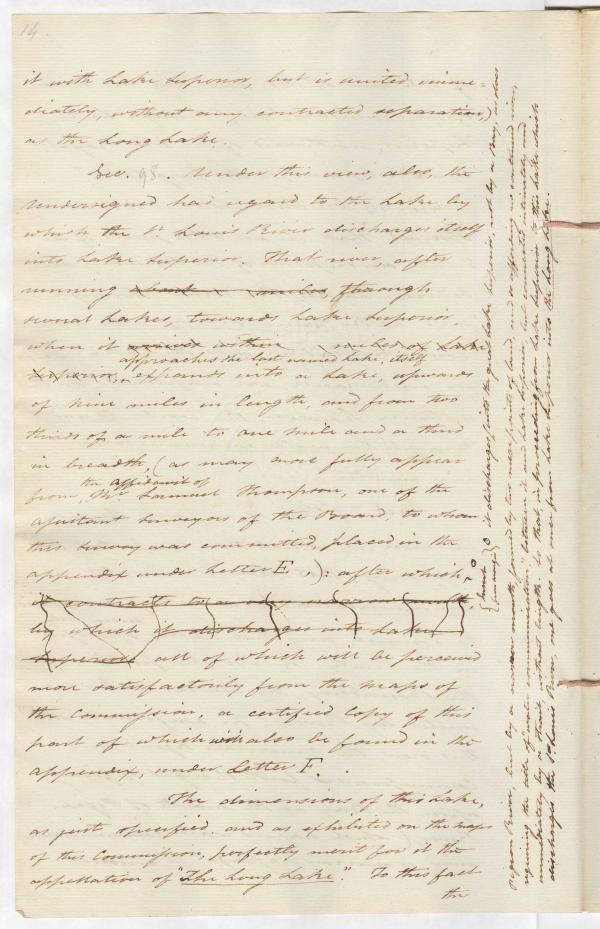 14.
it with Lake Superior, but is united imme-
diately, without any contracted separation,)
as the Long Lake.
Sec. 98. Under this view, also, the
Undersigned has regard to the Lake by
which the St. Louis River discharges itself
into Lake Superior. That river, after
running about miles, through
several Lakes, towards Lake Superior,
when it arrives within miles of Lake
approaches the last named Lake, itself
Superior, expands into a Lake, upwards
of nine miles in length, and from two
thirds of a mile to one mile and a third
in breadth, (as may most fully appear
the affidavit of
from, Mr. Samuel Thompson, one of the
assistant surveyors of the Board, to whom
this survey was committed, placed in the
appendix under Letter E,): after which,
it contracts to a very narrow
by which it discharges into Lake
Superior all of which will be perceived
more satisfactorily from the maps of
the Commission, a certified Copy of this
part of which will also be found in the
appendix, under Letter F.
The dimensions of this Lake,
as just specified, and as exhibited on the maps
of this Commission, perfectly merit for it the
appellation of "The Long Lake". To this fact
the
{insert
it discharges into the great Lake Superior, not by a Bay, as does
Pigeon River, but by a narrow mouth, formed by two near points of land, and so affording a continued view,
requiring the and Lake Superior, but connected, intimately and
immediately by a strait without length: so that, in proceeding from Lake Superior to this Lake which
discharges the St. Louis River, one goes at once from Lake Superior into the Long Lake.